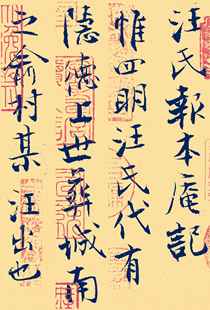 汪氏報本庵記
惟四明汪氏代有
隱德工世葬城南
之俞村某汪出也